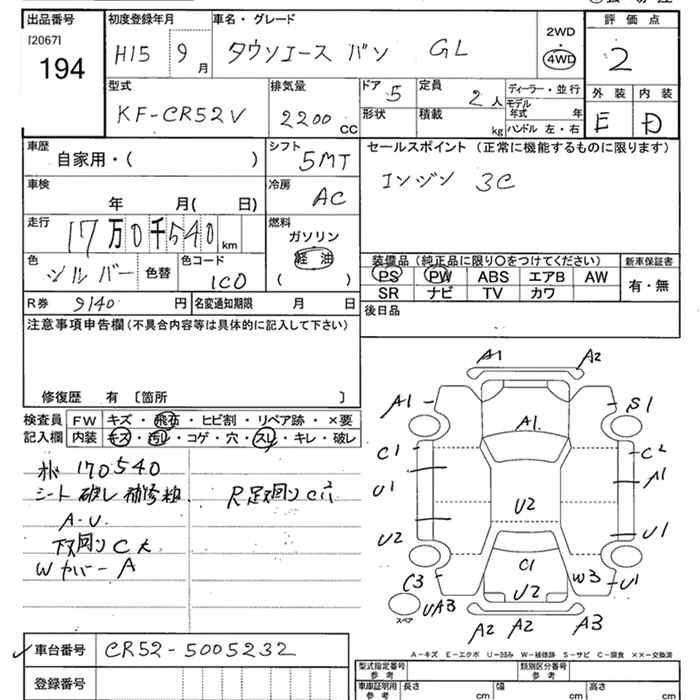 出品番号 初度登録年月 車名・グレード 2WD 評価点
[2067] 194 H15 9月 タウンエース バン GL ・ 4WD 2
型式 排気量 ドア 5 定員 2人 ディーラー・並行 外装 内装
KF-CR52V 2200 cc 形状 積載 kg モデル年式 年 ハンドル 左・右 E D
車歴 シフト セールスポイント (正常に機能するものに限ります)
自家用・( ) 5MT エンジン 3C
車検 冷房
年 月( 日) AC
走行 燃料
17万0千540 km ガソリン
色 色替 色コード 軽油 装備品(純正品に限り○をつけてください) 新車保証書
シルバー 1C0 ( ) PS PW ABS エアB AW 有・無
SR ナビ TV カワ
R券 9140 円 名変通知期限 月 日 後日品
注意事項申告欄(不具合内容等は具体的に記入して下さい)
修復歴 有 〔箇所 〕
検査員 FW キズ・飛石・ヒビ割・リペア跡・×要
記入欄 内装 キズ・汚レ・コゲ・穴・スレ・キレ・破レ
170540
シート 破レ 補修
A・U
下回り C大
Wカバー A
R足回り C
A1 A2
A1 S1
A1
C1 C2
U1 A1
U2
U2 U1
C1
C3 U2 W3 U1
スペア UA3
A2 A2 A3
A-キズ E-エクボ U-凹み W-補修跡 S-サビ C-腐食 ××-交換済
車台番号 CR52-5005232
登録番号
型式指定番号 類別区分番号
参考 参考
車庫証明用 長さ cm 幅 cm 高さ cm
参考